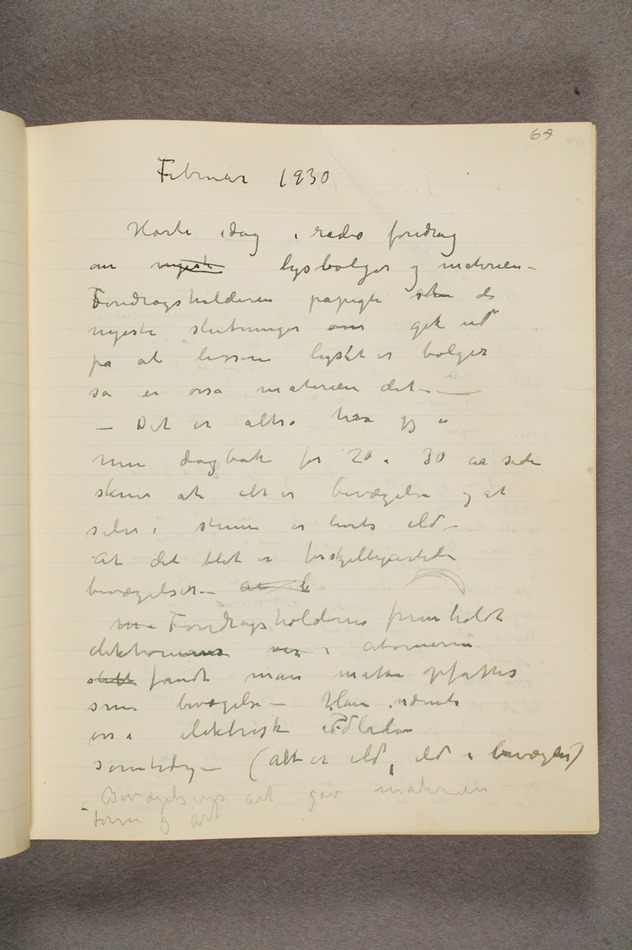 69
Februar 1930
Hørte idag i radio foredrag
om nyeste lysbølger og materien –
Foredragsholderen papegte de
nyeste slutninger gik ud
pa at lysset er bølger
sa er osa materien det –
– Det er altsa hva jeg i
min dagbok for 20 a 30 aar siden
skrev at alt er bevægelse og at
selv i stenen er livets ild –
at det blot er forskjelligartede
bevægelser –
Foredragsholderen fremholdt
elektronerne i atomerne
fandt man matte opfattes
som bevægelse – Han nævnte
os a elektrisk
samtidig – (alt er ild, ild i bevægelse)
– Bevægelsens art gav materien
form og art